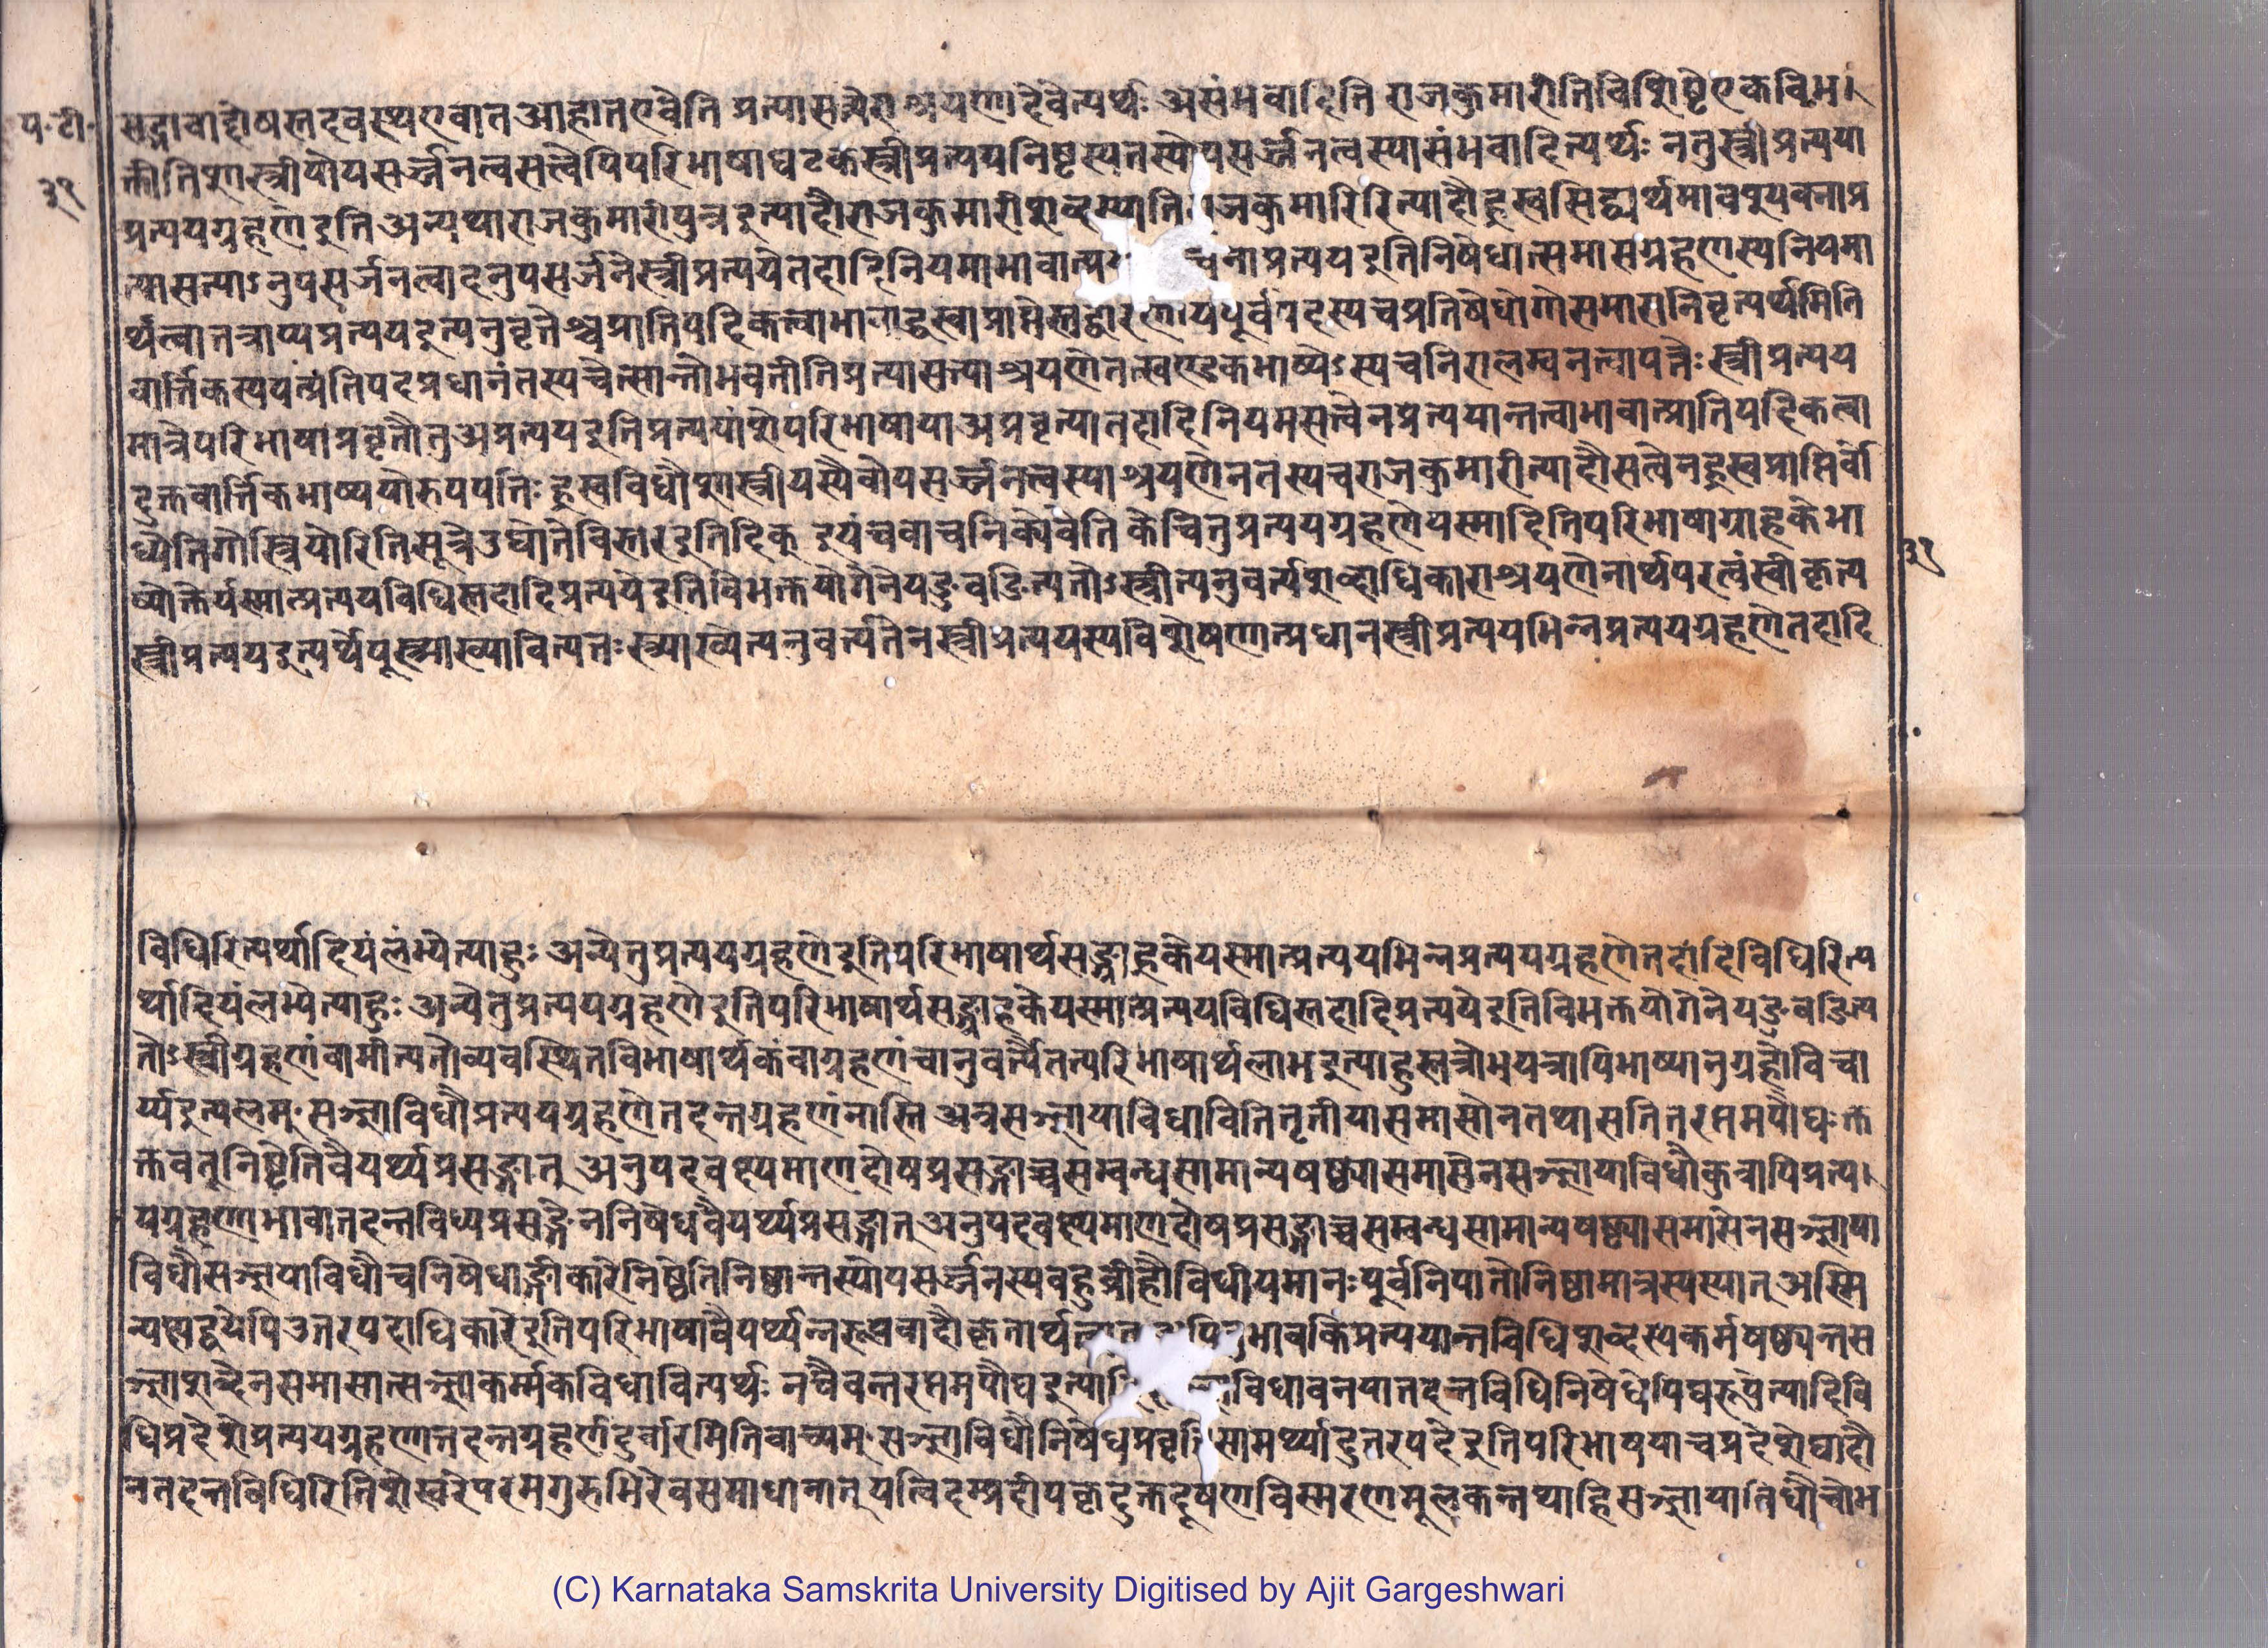 प॰टी॰
३१
सद्भावाद्दोषस्तदवस्थएवातआहातएवेति प्रत्यासत्तेराश्रयणादेवेत्यर्थः असंभवादिति राजकुमारीतिविशिष्टेएकविभ।
क्तीतिशास्त्रीयोपसर्ज्जनत्वसत्वेपिपरिभाषाघटकस्त्रीप्रत्ययनिष्टस्यतस्योपसर्ज्जनत्वस्यासंभवादित्यर्थः ननुस्त्रीप्रत्यया
प्रत्ययग्रहणेइति अन्यथाराजकुमारीपुत्रइत्यादौराजकुमारीशब्दस्याति जकुमारिरित्यादौह्रस्वसिद्ध्यर्थमावश्यकनाप्र
त्यासत्याऽनुपसर्जनत्वादनुपसर्जनेस्त्रीप्रत्ययेतदादिनियमाभावात्प्य चनाप्रत्ययइतिनिषेधात्समासग्रहणस्यनियमा
र्थत्वातत्राप्यप्रत्ययइत्यनुवृत्तेश्चप्रातिपदिकत्वाभावाद्ध्रस्वाप्राप्तेस्तद्वारणाय पूर्वपदस्यचप्रतिषेधोगोसमासनिवृत्यर्थमिति
वार्त्तिकस्ययत्प्रंतिपदप्रधानंतस्यचेत्सोन्तोभवतीतिप्रत्यासत्याश्रयणेनतत्खण्डकभाष्येऽस्यचनिरालम्बनत्वापत्तेः स्त्रीप्रत्यय
मात्रेपरिभाषाप्रवृतौतुअप्रत्ययइतिप्रत्ययांशेपरिभाषायाअप्रवृत्यातदादिनियमसत्वेनप्रत्ययान्तत्वाभावात्प्रातिपदिकत्वा
दुक्तवार्त्तिकभाष्ययोरुपपत्तिः ह्रस्वविधौशास्त्रीयस्यैवोपसर्ज्जनत्वस्याश्रयणेनतस्यचराजकुमारीत्यादौसत्वेनह्रस्वप्राप्तिर्वो
ध्येतिगोस्त्रियोरितिसूत्रेउद्योतेविस्तरइतिदिक् इयंचवाचनिक्येवेति केचित्तुप्रत्ययग्रहणेयस्मादितिपरिभाषाग्राहकेभा
ष्योक्तेर्यस्मात्प्रत्ययविधिस्तदादिप्रत्ययेइतिविभक्तयोगेनेयङुवङित्यतोऽस्त्रीत्यनुवर्त्यशब्दाधिकाराश्रयणेनार्थपरत्वंस्वीकृत्य
स्त्रीप्रत्ययइत्यर्थेयूस्त्र्याख्यावित्यतःस्त्र्याख्येत्यनुवर्त्यतेनस्त्रीप्रत्ययस्यविशेषणात्प्रधानस्त्रीप्रत्ययभिन्नप्रत्ययग्रहणेतदादि
३१
विधिरित्यर्थादियंलभ्येत्याहुः अन्येतुप्रत्ययग्रहणेइतिपरिभाषार्थसङ्ग्राहकेयस्मात्प्रत्ययभिन्नप्रत्ययग्रहणेतदादिविधिरित्य
र्थादियंलभ्येत्याहुः अन्येतुप्रत्ययग्रहणेइतिपरिभाषार्थसङ्ग्राहकेयस्मात्प्रत्ययविधिस्तदादिप्रत्ययेइतिविभक्तयोगेनेयङुवङित्य
तोऽस्त्रीग्रहणंवामीत्यतोव्यवस्थितविभाषार्थकंवाग्रहणंचानुवर्त्यैतत्परिभाषार्थलाभइत्याहुस्तत्रोभयत्रापिभाष्यानुग्रहोविचा
र्य्यइत्यलम् सञ्ज्ञाविधौप्रत्ययग्रहणेतदन्तग्रहणंनास्ति अत्रसञ्ज्ञायाविधावितितृतीयासमासोनतथासतितरप्तमपौघःक्त
क्तवतूनिष्टेतिवैयर्थ्यप्रसङ्गात् अनुपदवक्ष्यमाणदोषप्रसङ्गाच्चसम्बन्धसामान्यषष्ठ्यासमासेनसञ्ज्ञायाविधौकुत्रापिप्रत्य।
यग्रहणाभावात्तदन्तविध्यप्रसङ्गेननिषेधवैयर्थ्यप्रसङ्गात् अनुपदवक्ष्यमाणदोषप्रसङ्गाच्चसम्बन्धसामान्यषष्ठ्यासमासेनसञ्ज्ञाया
विधौसञ्ज्ञयाविधौचनिषेधाङ्गीकारेनिष्ठेतिनिष्ठान्तस्योपसर्ज्जनस्यबहुव्रीहौविधीयमानःपूर्वनिपातोनिष्ठामात्रस्यस्यात् अस्मि
न्पक्षद्वयेपिउत्तरपदाधिकारेइतिपरिभाषावैयर्थ्यन्नरूपबादौकृतार्थत्वात् भावकिंप्रत्ययान्तविधिशब्दस्येकर्मषष्ठ्यन्तस
ञ्ज्ञाशब्देनसमासात्सञ्ज्ञाकर्म्मकविधावित्यर्थः नचैवन्तरप्तमपौघइत्या विधावनयातदन्तविधिनिषेधेपिघरूपेत्यादिवि
धिप्रदेशेप्रत्ययग्रहणात्तदन्तग्रहणंदुर्वारमितिवाच्यम् सञ्ज्ञाविधौनिषेधप्रवृत्तिसामर्थ्यादुत्तरपदेइतिपरिभाषयाचप्रदेशेघादौ
नतदन्तविधिरितिशेखरेपरमगुरुभिरेवसमाधानात् यत्विदम्प्रदीपकृदुक्तदूषणविस्मरणमूलकन्तथाहिसञ्ज्ञायातिधौचोभ
(C) Karnataka Samskrita University Digitised by Ajit Gargeshwari